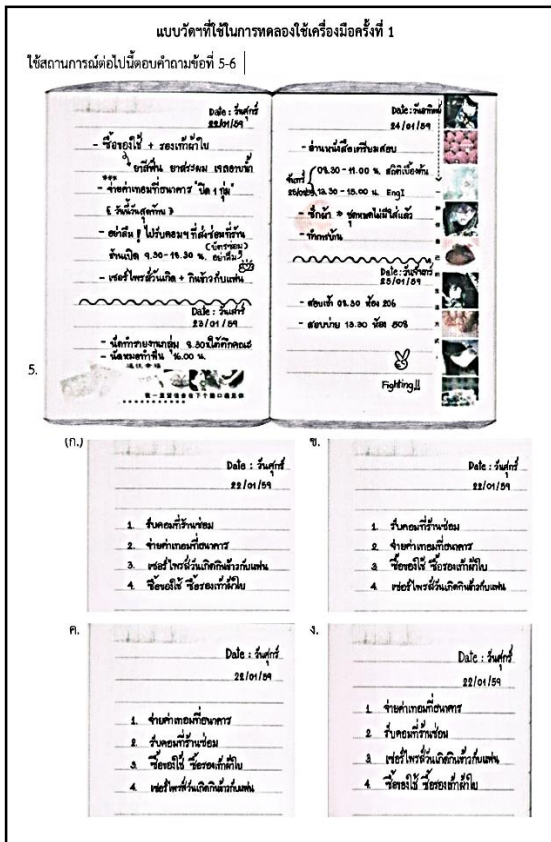 แบบวัดฯที่ใช้ในการทดลองใช้เครื่องมือครั้งที่ 1
ใช้สถานการณ์ต่อไปนี้ตอบคำถามข้อที่ 5-6
5.
Date: วันศุกร์
22/01/59
- ซื้อของใช้ + รองเท้าผ้าใบ
ยาสีฟัน ยาสระผม เจลอาบน้ำ
- จ่ายค่าเทอมที่ธนาคาร "ปิด 1 ทุ่ม"
{ วันนี้วันสุดท้าย }
- อย่าลืม ! ไปรับคอมฯ ที่ส่งซ่อมที่ร้าน
(บัตรซ่อม)
ร้านเปิด 9.30-18.30 น. อย่าลืม
- เซอร์ไพรส์วันเกิด + กินข้าวกับแฟน
Date: วันเสาร์
23/01/59
- นัดทำรายงานกลุ่ม 8.30 ใต้ตึกคณะ
- นัดหมอทำฟัน 16.00 น.
Date: วันอาทิตย์
24/01/59
- อ่านหนังสือเตรียมสอบ
จันทร์
25/01/59
08.30 - 11.00 น. สถิติเบื้องต้น
13.30 - 15.00 น. Eng I
- ซักผ้า * ชุดหมดไม่มีใส่แล้ว
- ทำการบ้าน
25/01/59
- สอบเช้า 08.30 ห้อง 206
- สอบบ่าย 13.30 ห้อง 808
Fighting!!
(ก.)
Date : วันศุกร์
22/01/59
1. รับคอมที่ร้านซ่อม
2. จ่ายค่าเทอมที่ธนาคาร
3. เซอร์ไพรส์วันเกิดกินข้าวกับแฟน
4. ซื้อของใช้ ซื้อรองเท้าผ้าใบ
ข.
Date : วันศุกร์
22/01/59
1. รับคอมที่ร้านซ่อม
2. จ่ายค่าเทอมที่ธนาคาร
3. ซื้อของใช้ ซื้อรองเท้าผ้าใบ
4. เซอร์ไพรส์วันเกิดกินข้าวกับแฟน
ค.
Date : วันศุกร์
22/01/59
1. จ่ายค่าเทอมที่ธนาคาร
2. รับคอมที่ร้านซ่อม
3. ซื้อของใช้ ซื้อรองเท้าผ้าใบ
4. เซอร์ไพรส์วันเกิดกินข้าวกับแฟน
ง.
Date : วันศุกร์
22/01/59
1. จ่ายค่าเทอมที่ธนาคาร
2. รับคอมที่ร้านซ่อม
3. เซอร์ไพรส์วันเกิดกินข้าวกับแฟน
4. ซื้อของใช้ ซื้อรองเท้าผ้าใบ